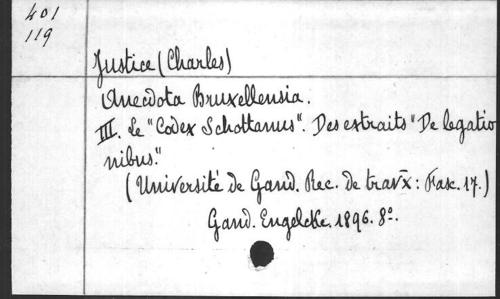 401
119
Justice (Charles)
Anecdota Bruxellensia.
III. Le "Codex Schottanus". Des extraits "De legatio
nibus."
(Université de Gand. Rec. de trav̄x: Fasc. 17.)
Gand. Engelcke. 1896. 8º.